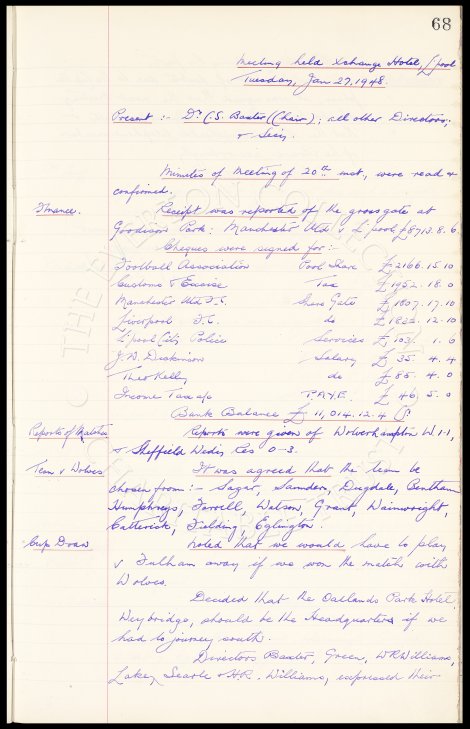 68
Meeting held Xchange Hotel, L'pool
Tuesday, Jan 27. 1948.
Present :- Dr C. S. Baxter (Chair); all other Directors;
& Secy.
Minutes of Meeting of 20th inst., were read &
confirmed.
Finance. Receipt was reported of the gross gate at
Goodison Park: Manchester Utd v L'pool £8713. 8. 6.
Cheques were signed for :-
Football Association Pool Share £2166. 15. 10
Customs & Excise Tax £1952. 18. 0
Manchester Utd F.C. Share Gate £1807. 17. 10
Liverpool F.C. do £1832. 12. 10
L'pool City Police Services £103. 1. 6
J. W. Dickinson Salary £35. 4. 4
Theo Kelly do £85. 4. 0
Income Tax a/c P.A.Y.E. £46. 5. 0
Bank Balance £11,014. 12. 4
Reports of Matches Reports were given of Wolverhampton W 1-1,
& Sheffield Wedn. Res 0-3.
Team v Wolves It was agreed that the team be
chosen from :- Sagar, Saunders, Dugdale, Bentham
Humphreys, Farrell, Watson, Grant, Wainwright,
Catterick, Fielding, Eglington.
Cup Draw Noted that we would have to play
v Fulham away if we won the match with
Wolves.
Decided that the Oatlands Park Hotel,
Weybridge, should be the Headquarters if we
had to journey south.
Directors Baxter, Green, W R Williams,
Lake, Searle & H R. Williams, expressed their